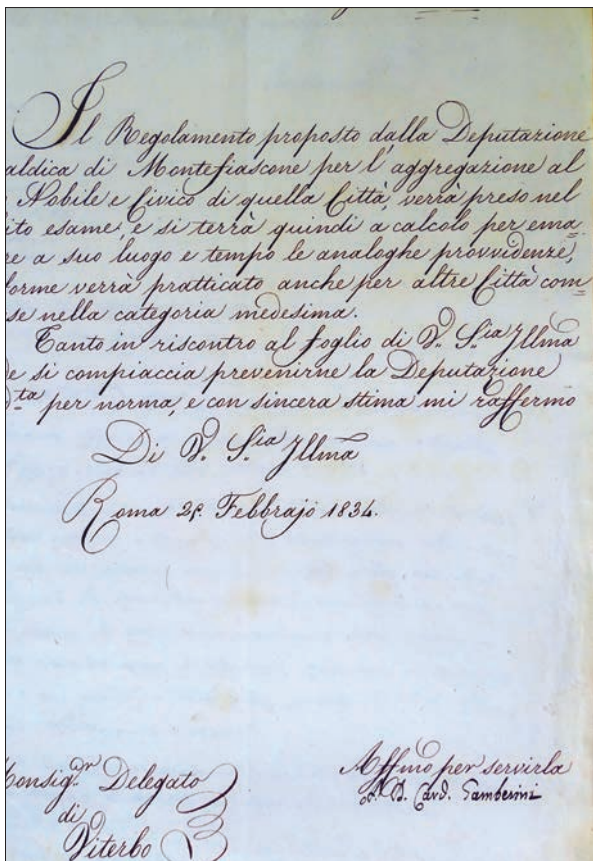 Il Regolamento proposto dalla Deputazione
aldica di Montefiascone per l'aggregazione al
Nobile e Civico di quella Città, verrà preso nel
ito esame, e si terrà quindi a calcolo per ema=
re a suo luogo e tempo le analoghe provvidenze,
forme verrà pratticato anche per altre Città com=
se nella categoria medesima.
Tanto in riscontro al foglio di V. S.ia Illma
e si compiaccia prevenirne la Deputazione
d.ta per norma, e con sincera stima mi raffermo
Di V. S.ia Illma
Roma Febbrajo 1834.
Monsig.r Delegato
di
Viterbo
Affmo per servirla
A. D. Card. Gamberini